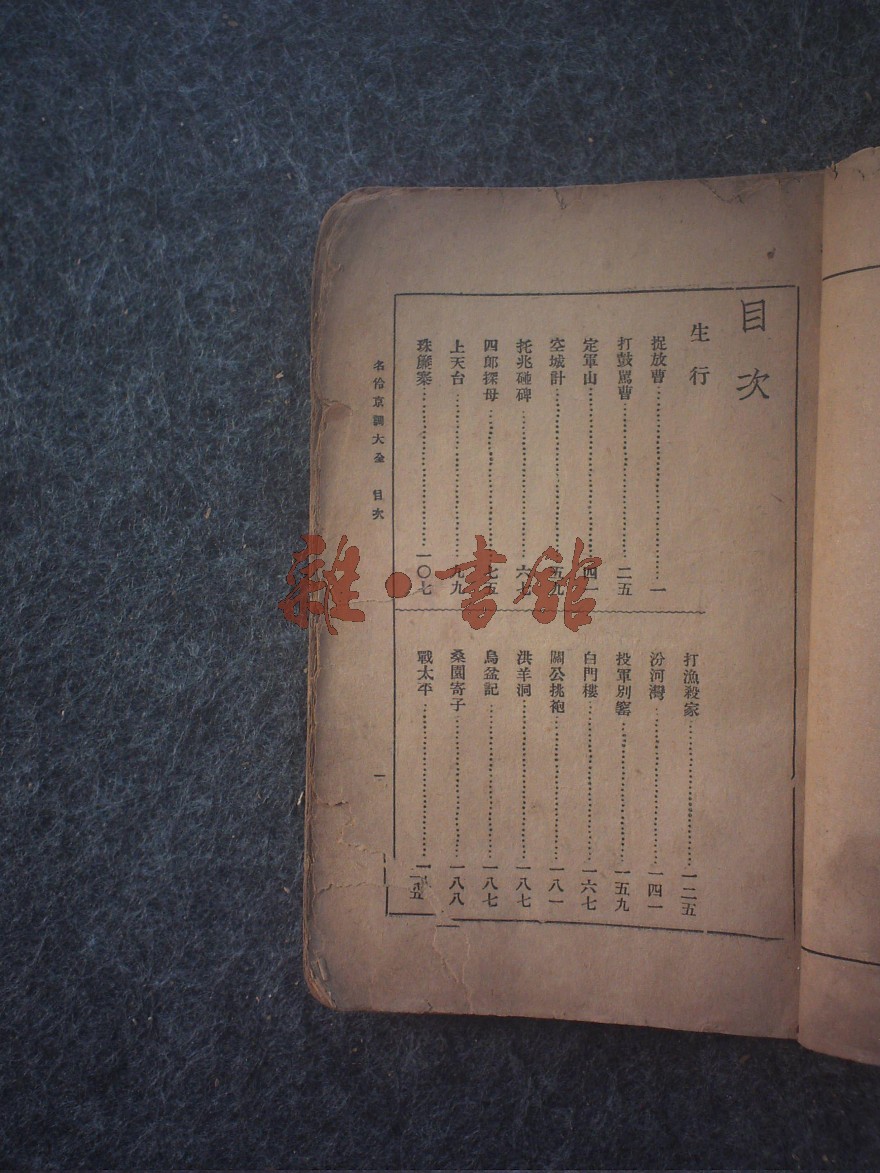 目次
生行
捉放曹…………一
打鼓罵曹…………二五
定軍山…………四一
空城計…………五九
托兆碰碑…………六七
四郎探母…………七五
上天台…………九九
珠簾寨…………一〇七
打漁殺家…………一二五
汾河灣…………一四一
投軍別窰…………一五九
白門樓…………一六七
關公挑袍…………一八一
洪羊洞…………一八七
烏盆記…………一八七
桑園寄子…………一八八
戰太平…………
名伶京調大全 目次
一
雜·書館